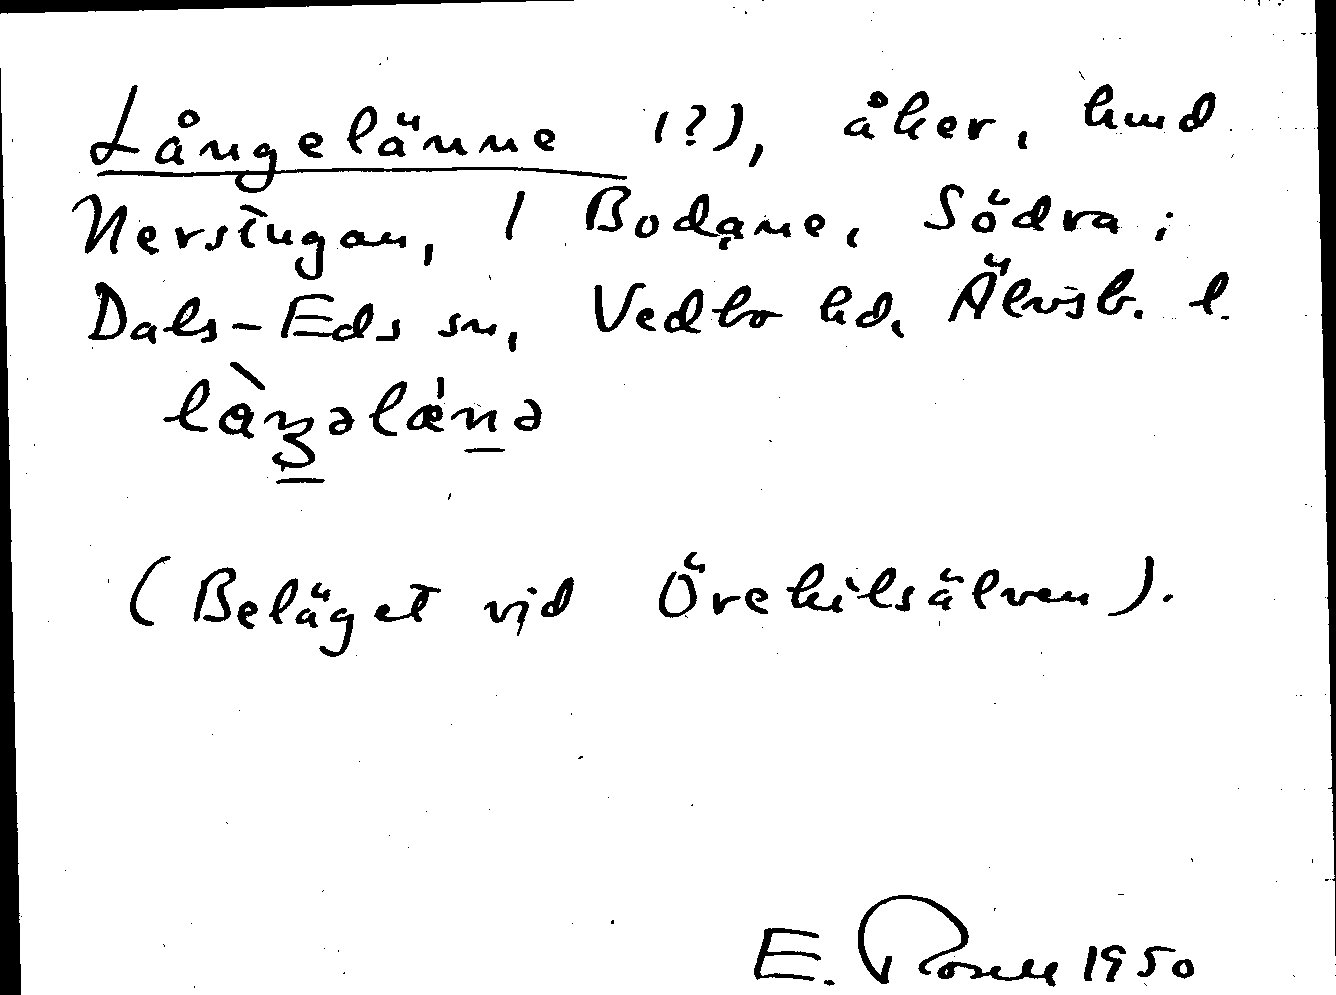 Långelänne (?), åker, hmd
Nerstugan, 1 Bodane, Södra;
Dals-Eds sn, Vedbo hd, Älvsb. l.
(Beläget vid Örekilsälven).
E. Rosell 1950